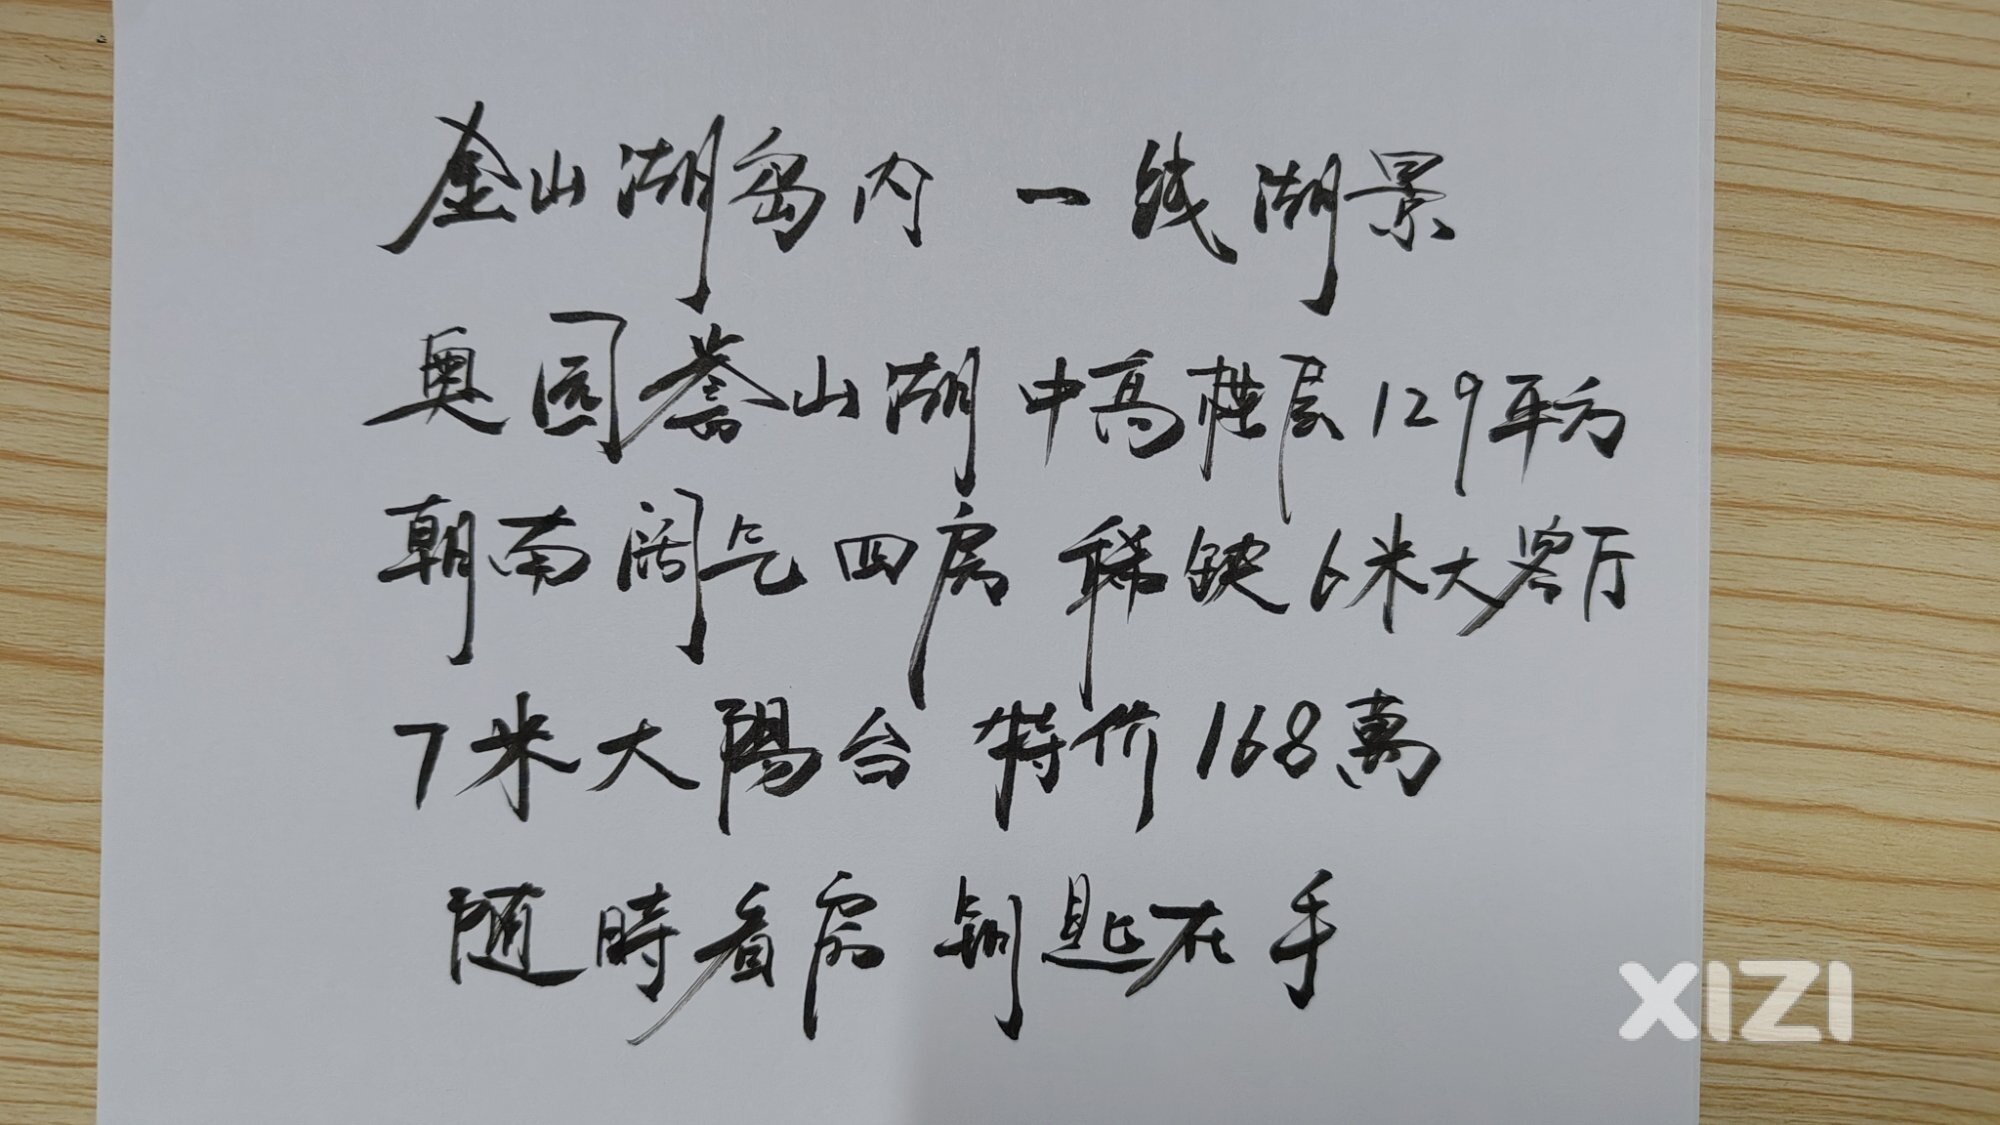 金山湖岛内 一线湖景
奥园誉山湖 中高楼层129平方
朝南阔气四房 稀缺6米大客厅
7米大陽台 特价168萬
随時看房 钥匙在手
XIZI